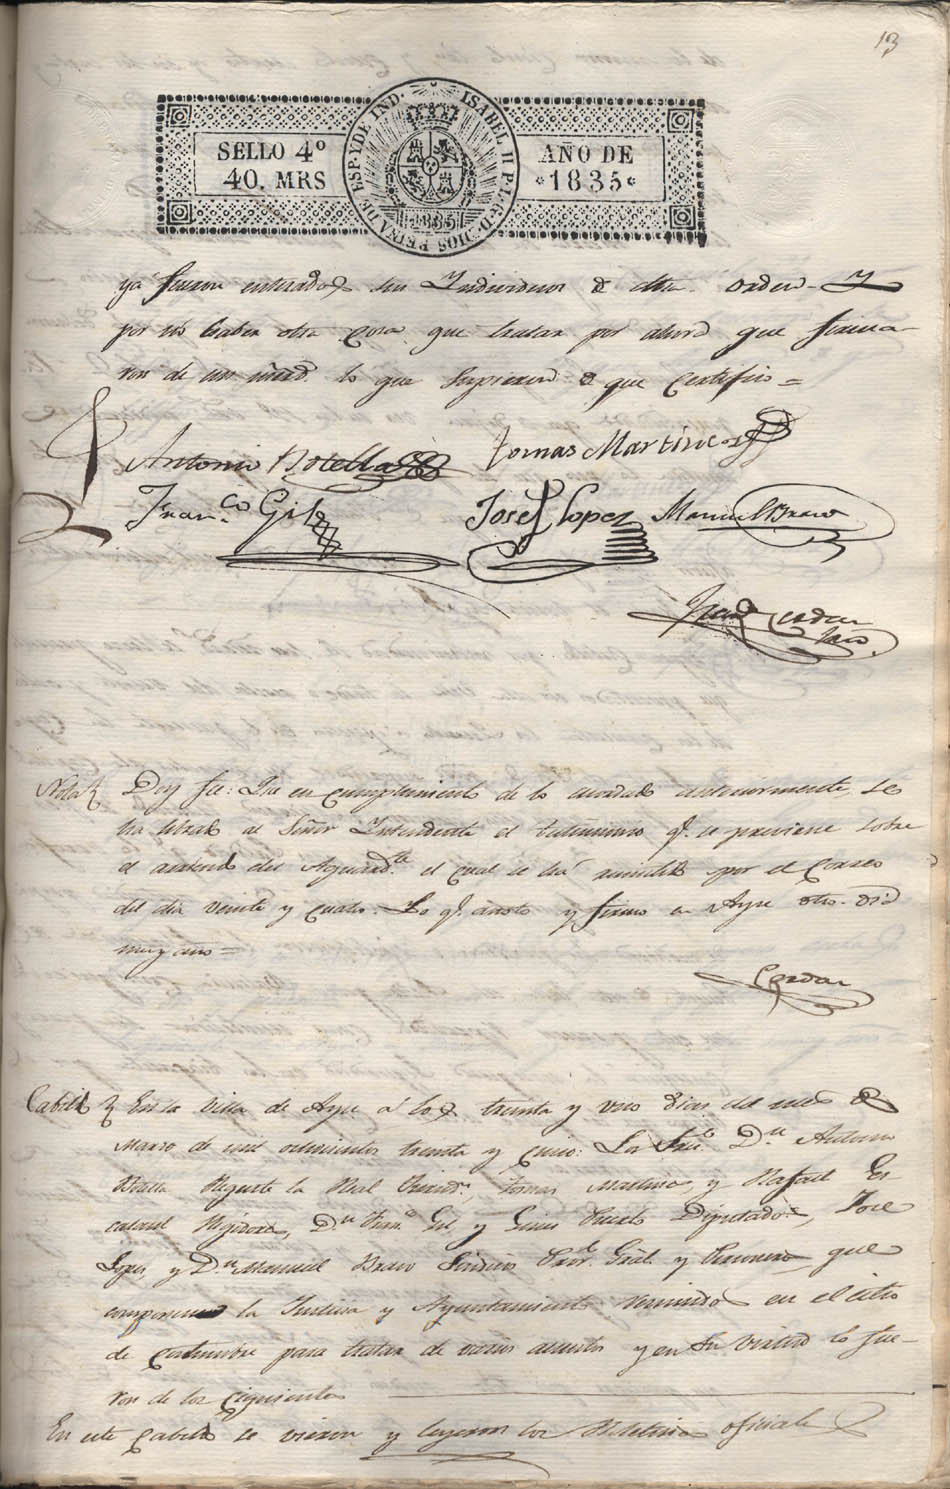 13
SELLO 4º
40. MRS
ISABEL II P. L. G. D. DIOS REINA DE ESP. Y DE IND.
1835
AÑO DE
1835
ya fueron enterados sus Individuos de dha. orden. Y
por no haber otra cosa que tratar por ahora que firma-
ron de sus mrds. lo que supieron de que Certifico =
Antonio Botella Tomas Martinez
Franco. Gil Josef Lopez Manuel Bravo
Cerdan
Nota Doy fee: Que en cumplimiento de lo acordado anteriormente, se
ha librado al Señor Intendente el testimonio q. se previene sobre
el arriendo del Aguardte. el cual se há remitido por el Correo
del dia veinte y cuatro. Lo q. anoto y firmo en Ayna dho. dia
mes y año =
Cerdan
Cabildo En la Villa de Ayna á los treinta y uno dias del mes de
Marzo de mil ochocientos treinta y cinco: Los Sres. Dn. Antonio
Botella Regente la Real Jurisdn., Tomas Martinez, y Rafael
Regidores, Dn. Franco. Gil, y Diputados, Jose
Lopez, y Dn. Manuel Bravo Sindico Pror. Gral. y Personero, que
componen la Justicia y Ayuntamiento reunidos en el sitio
de costumbre para tratar de varios asuntos y en su virtud lo fue-
ron de los siguientes
En este Cabildo se vieron y leyeron los Boletines oficiales